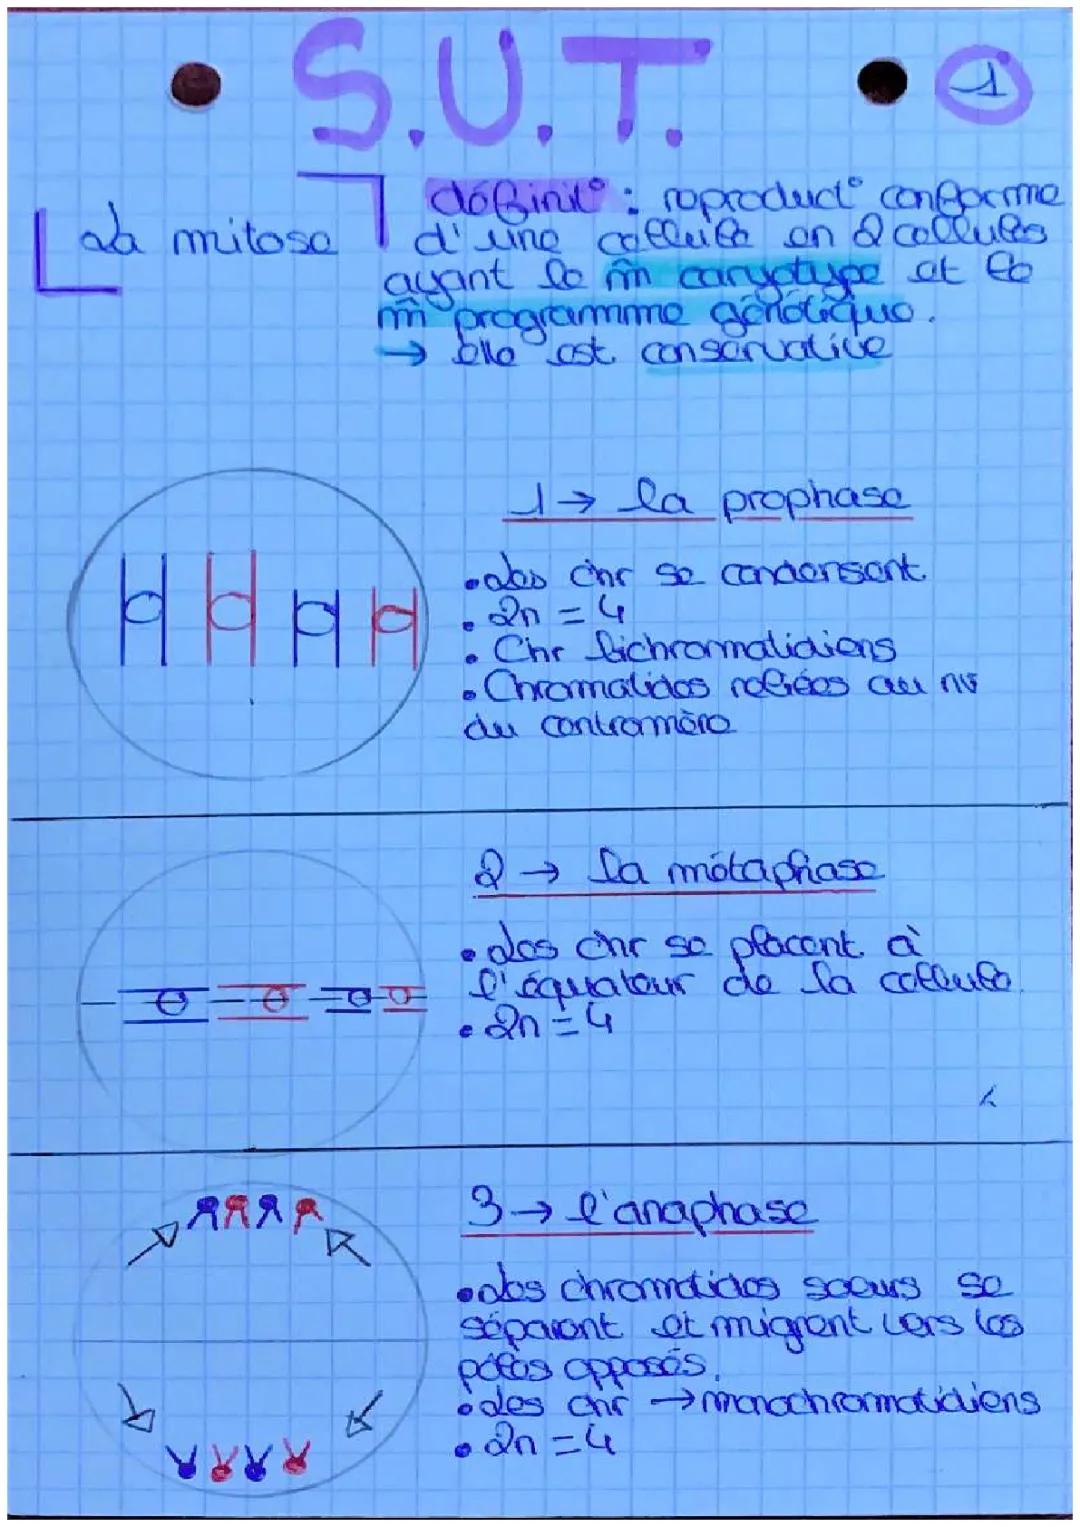 S.V.T.
1
La mitose
définit° : reproduct° conforme
d'une cellule en 2 cellules
ayant le m̂ caryotype et le
m̂ programme génétique.
→ elle est conservative
1 → la prophase
• Les chr se condensent.
• 2n = 4
• Chr bichromatidiens
• Chromatides reliées au nv
du centromère
2 → la métaphase
• Les chr se placent à
l'équateur de la cellule.
• 2n = 4
3 → l'anaphase
• Les chromatides soeurs se
séparent et migrent vers les
pôles opposés.
• des chr → monochromatidiens
• 2n = 4